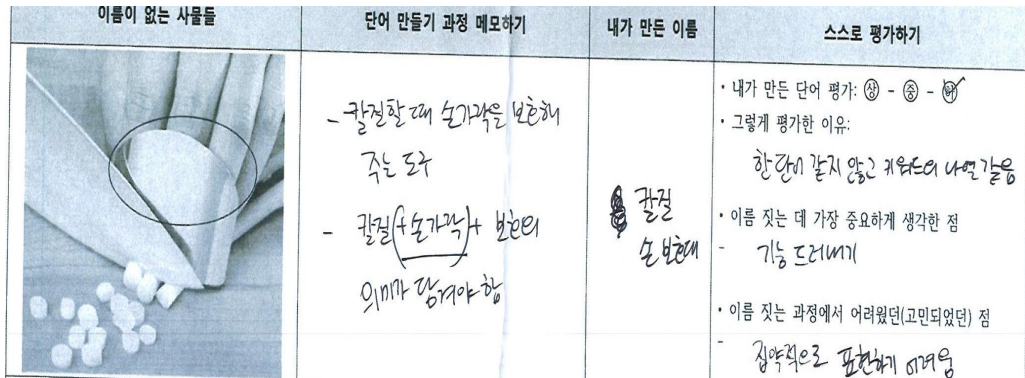 이름이 없는 사물들
단어 만들기 과정 메모하기
내가 만든 이름
스스로 평가하기
- 칼질할 때 손가락을 보호해
주는 도구
- 칼질(+손가락)+ 보호의
의미가 담겨야 함
칼질
손 보호대
• 내가 만든 단어 평가: 상 - 중 - 하
• 그렇게 평가한 이유:
한 단어 같지 않고 키워드의 나열 같음
• 이름 짓는 데 가장 중요하게 생각한 점
- 기능 드러내기
• 이름 짓는 과정에서 어려웠던(고민되었던) 점
- 집약적으로 표현하기 어려움